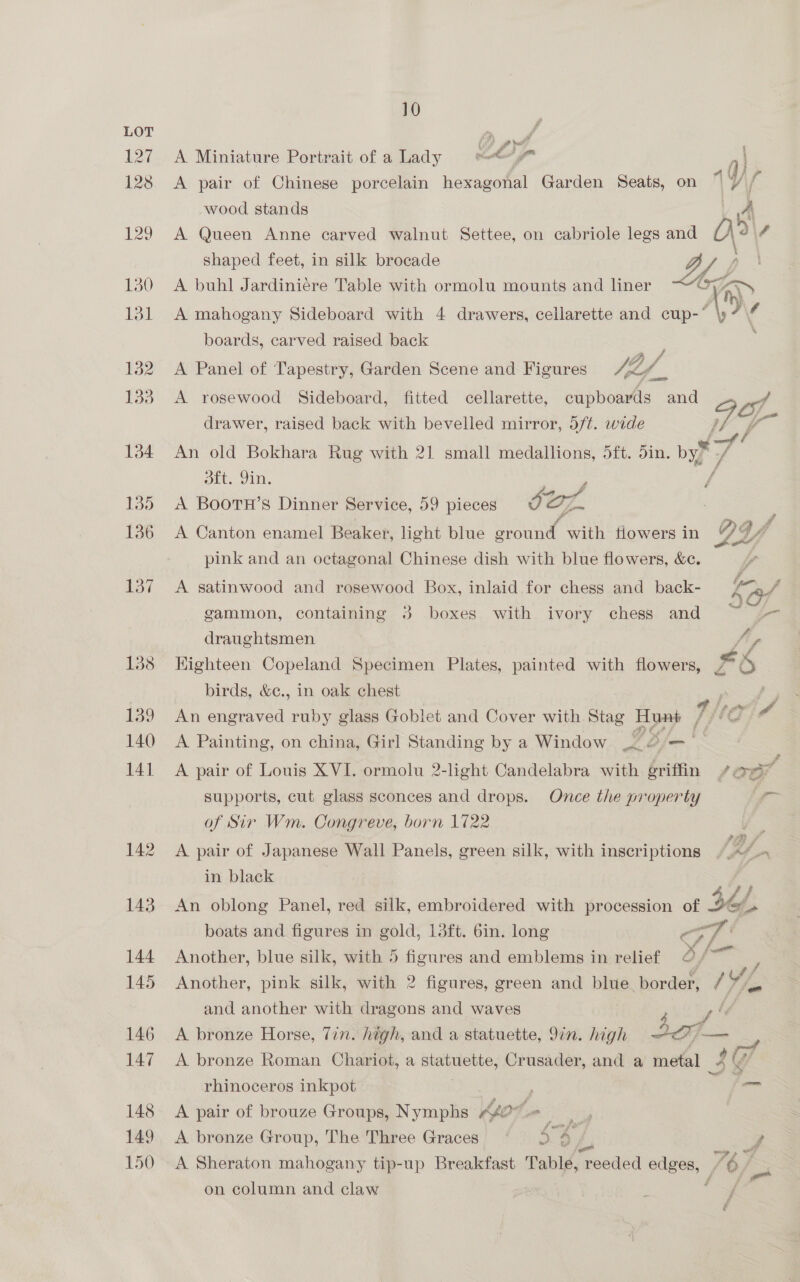 10
LOT
127 A Miniature Portrait of a Lady
128 A pair of Chinese porcelain hexagonal Garden Seats, on
wood stands
129 A Queen Anne carved walnut Settee, on cabriole legs and
shaped feet, in silk brocade
130 A buhl Jardinière Table with ormolu mounts and liner
131 A mahogany Sideboard with 4 drawers, cellarette and cup-
boards, carved raised back
132 A Panel of Tapestry, Garden Scene and Figures
133 A rosewood Sideboard, fitted cellarette, cupboards and
drawer, raised back with bevelled mirror, 5ft. wide
134 An old Bokhara Rug with 21 small medallions, 5ft. 5in. by
3ft. 9in.
135 A BOOTH'S Dinner Service, 59 pieces
136 A Canton enamel Beaker, light blue ground with flowers in
pink and an octagonal Chinese dish with blue flowers, &c.
137 A satinwood and rosewood Box, inlaid for chess and back-
gammon, containing 3 boxes with ivory chess and
draughtsmen
138 Eighteen Copeland Specimen Plates, painted with flowers,
birds, &c., in oak chest
139 An engraved ruby glass Goblet and Cover with Stag Hunt
140 A Painting, on china, Girl Standing by a Window
141 A pair of Louis XVI. ormolu 2-light Candelabra with griffin
supports, cut glass sconces and drops. Once the property
of Sir Wm. Congreve, born 1722
142 A pair of Japanese Wall Panels, green silk, with inscriptions
in black
143 An oblong Panel, red silk, embroidered with procession of
boats and figures in gold, 13ft. 6in. long
144 Another, blue silk, with 5 figures and emblems in relief
145 Another, pink silk, with 2 figures, green and blue border,
and another with dragons and waves
146 A bronze Horse, 7in. high, and a statuette, 9in. high
147 A bronze Roman Chariot, a statuette, Crusader, and a metal
rhinoceros inkpot
148 A pair of brouze Groups, Nymphs
149 A bronze Group, The Three Graces
150 A Sheraton mahogany tip-up Breakfast Table, reeded edges,
on column and claw